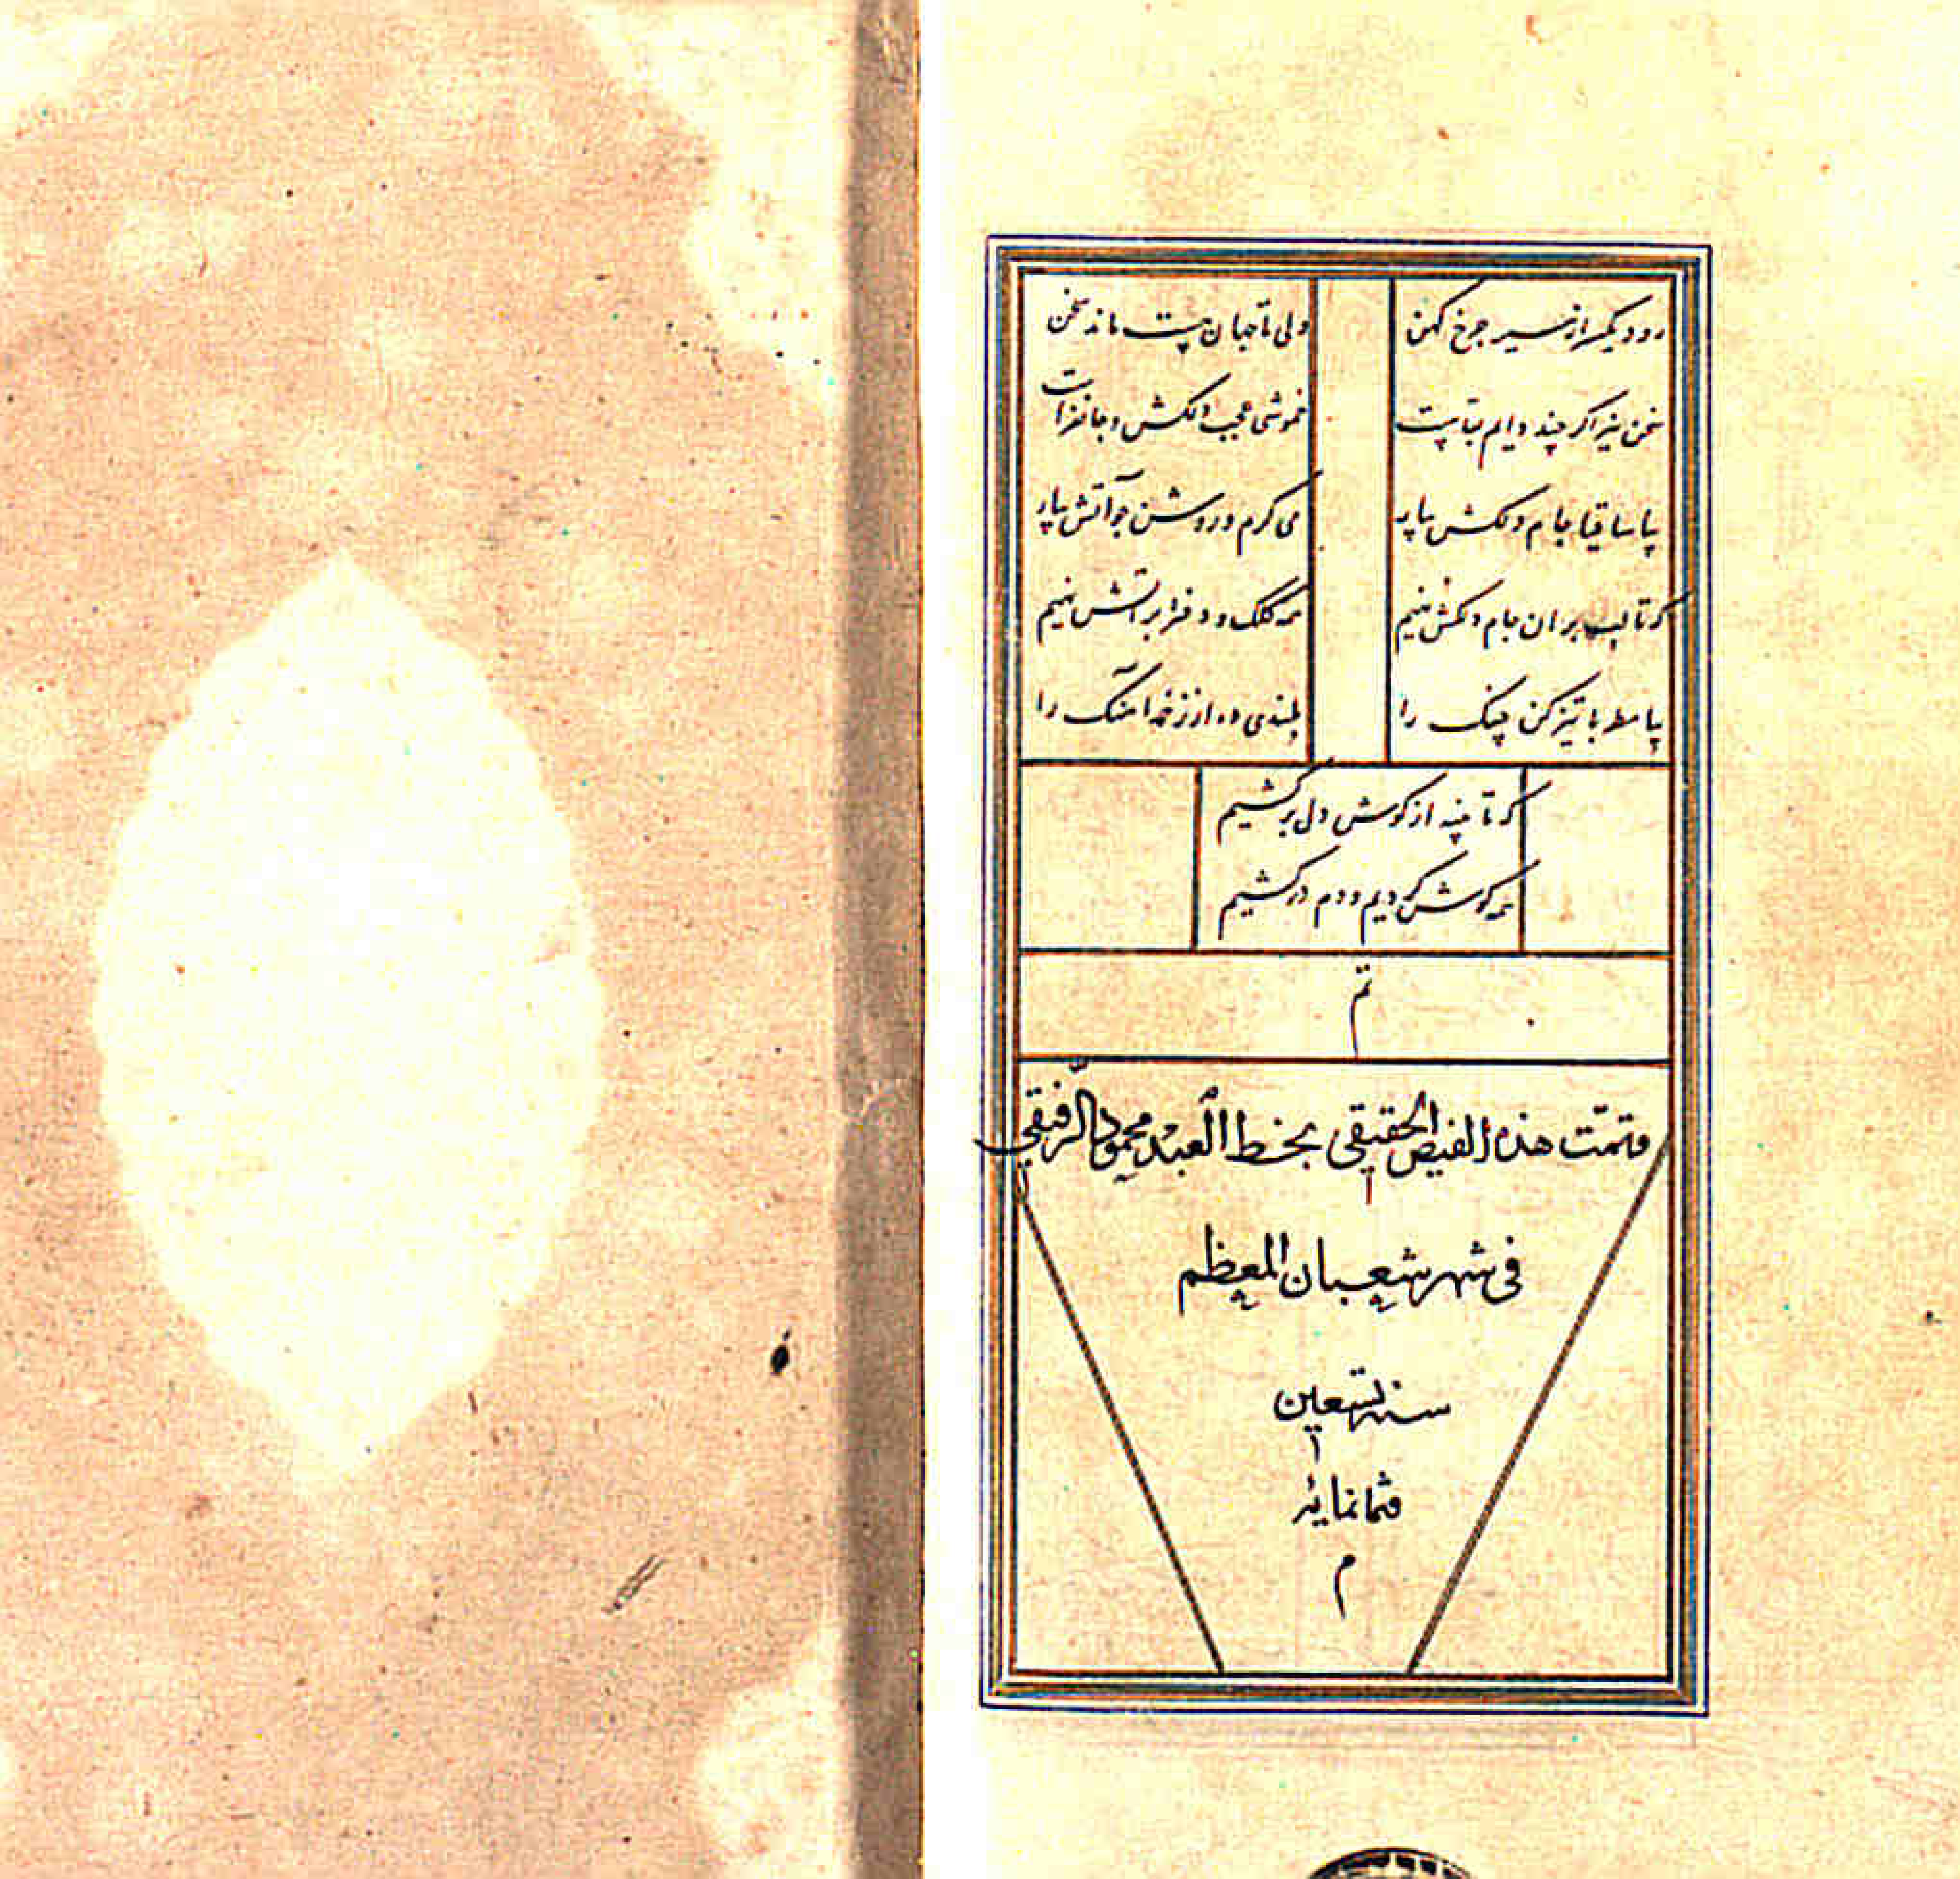 رود یکسر از سیر چرخ کهن ولی تا جهان هست ماند سخن
سخن نیز اگر چند دایم بقاست خموشی عجب دلکش و جانفزاست
بیا ساقیا جام دلکش بیار می گرم و روشن چو آتش بیار
که تا لب بر ان جام دلکش نهیم همه کلک و دفتر بر آتش نهیم
بیا مطربا تیز کن چنک را بلندی ده از زخمه آهنک را
که تا پنبه از کوش دل بر کشیم
همه کوش کردیم و دم در کشیم
تم
وتمت هذه الفیض الحقیقی بخط العبد محمود الرفیقی
فی شهر شعبان المعظم
سنه تسعین
وثمانمایه
م